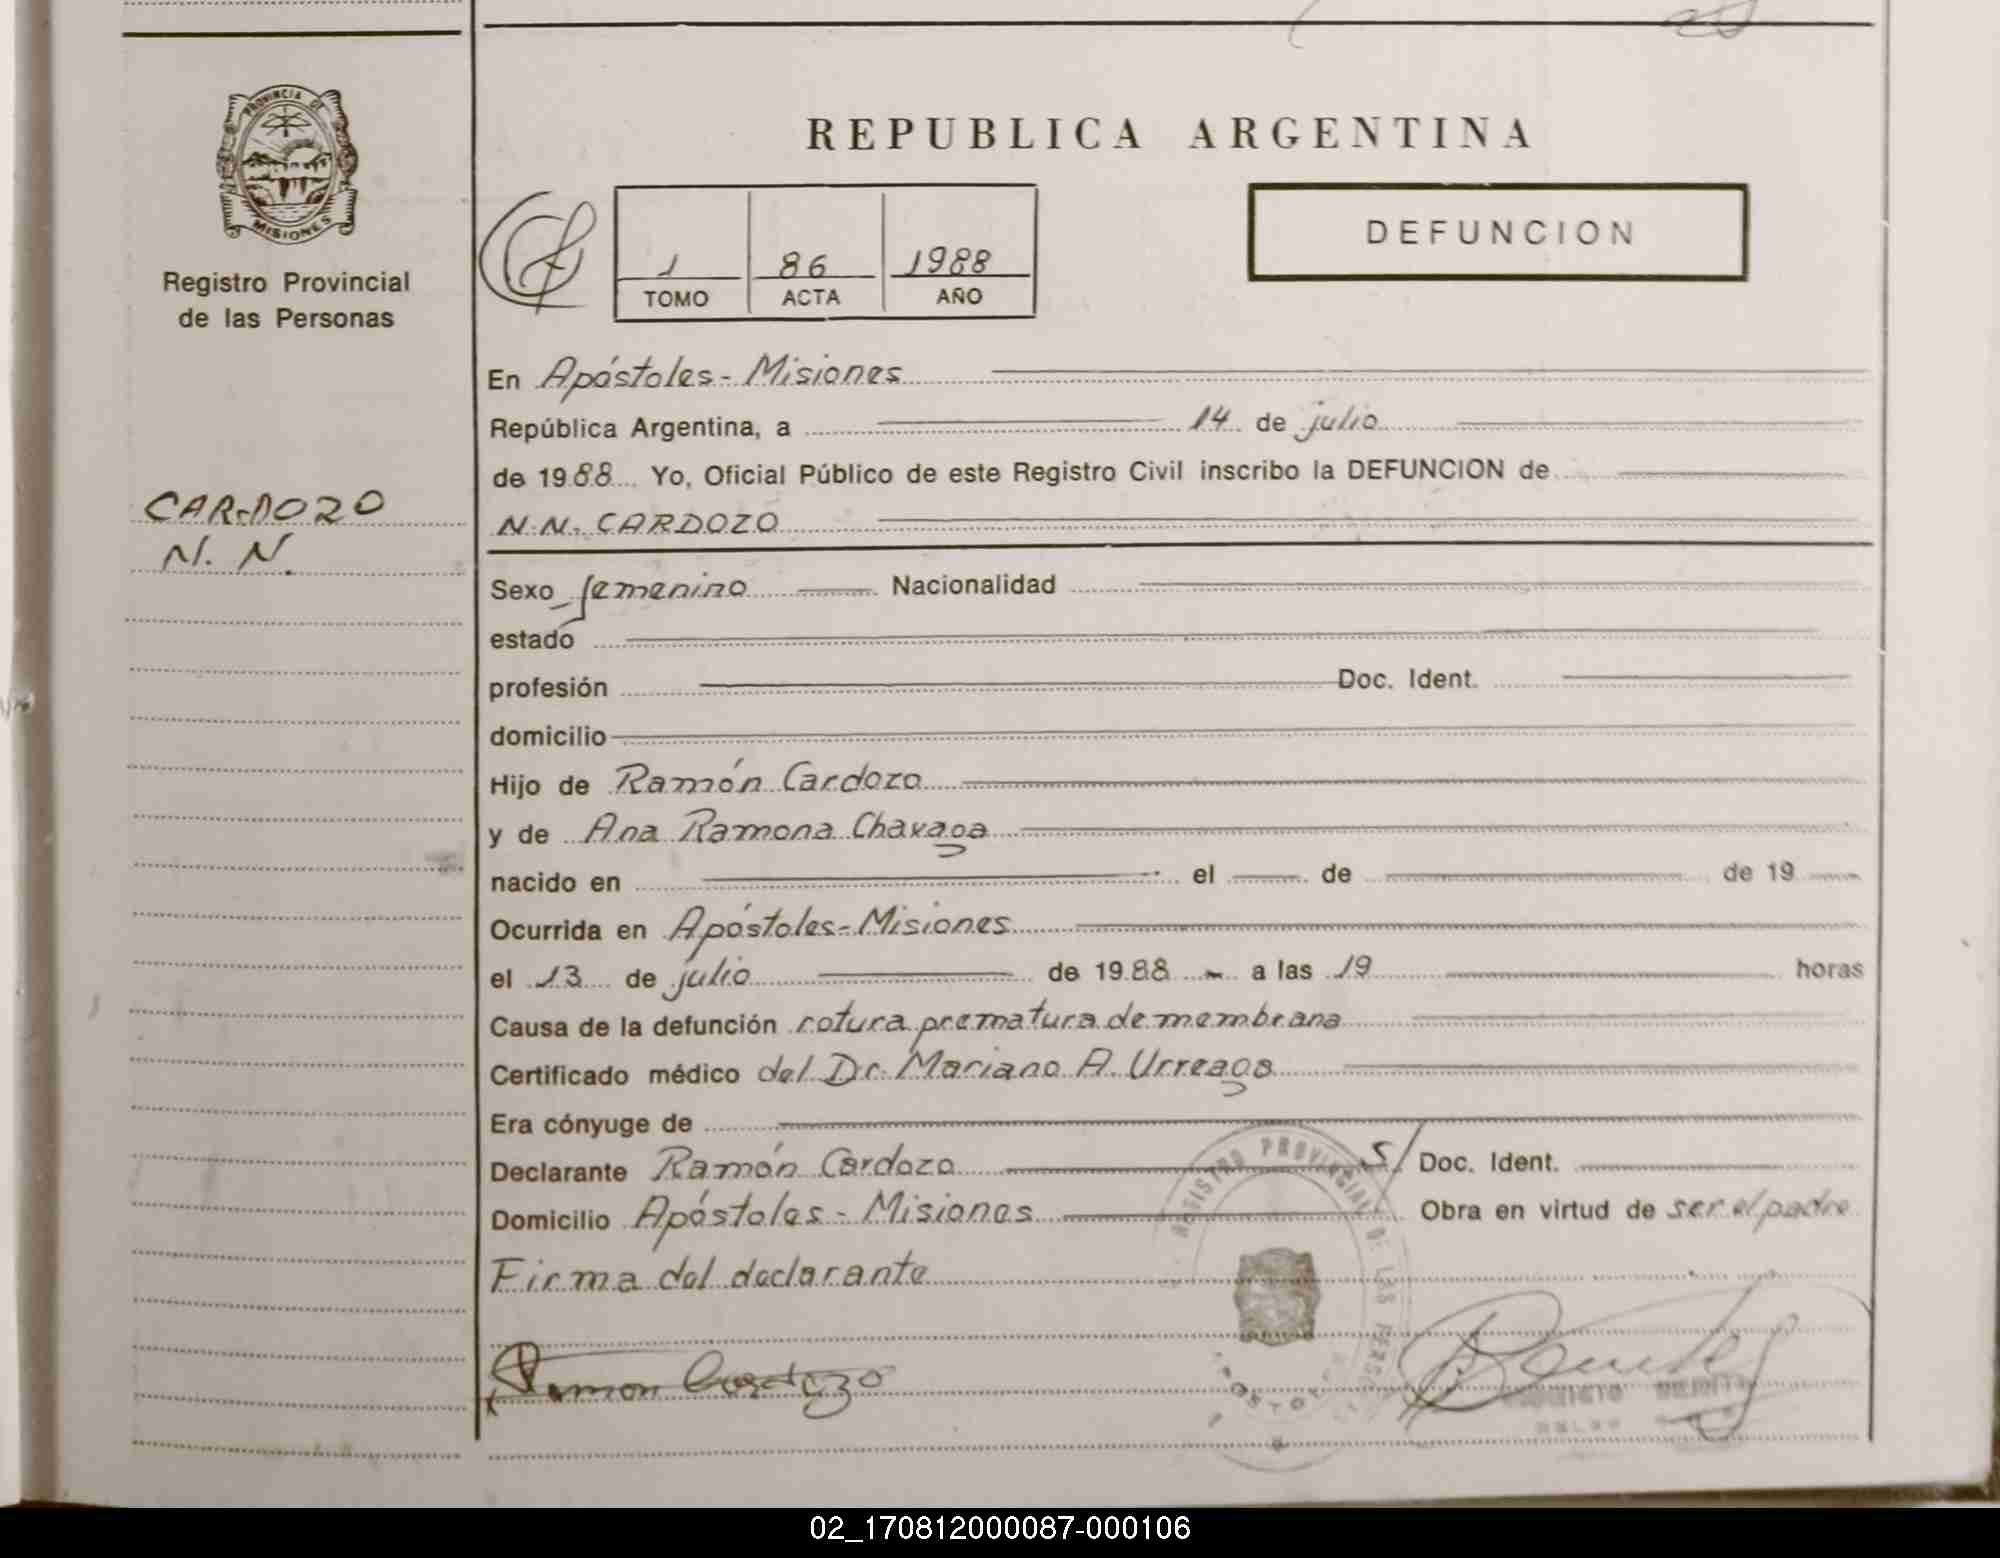 PROVINCIA DE
MISIONES
Registro Provincial
de las Personas
CARDOZO
N. N.
REPUBLICA ARGENTINA
1 86 1988
TOMO ACTA AÑO
DEFUNCION
En Apóstoles - Misiones
República Argentina, a 14 de julio
de 1988 Yo, Oficial Público de este Registro Civil inscribo la DEFUNCION de
N.N. CARDOZO
Sexo femenino Nacionalidad
estado
profesión Doc. Ident.
domicilio
Hijo de Ramón Cardozo
y de Ana Ramona Chavaga
nacido en el de de 19
Ocurrida en Apóstoles - Misiones
el 13 de julio de 1988 a las 19 horas
Causa de la defunción rotura prematura de membrana
Certificado médico del Dr. Mariano A. Urreaga
Era cónyuge de
Declarante Ramón Cardozo S/ Doc. Ident.
Domicilio Apóstoles - Misiones Obra en virtud de ser el padre
Firma del declarante
Ramon Cardozo
REGISTRO PROVINCIAL DE LAS PERSONAS
APOSTOLES
02_170812000087-000106